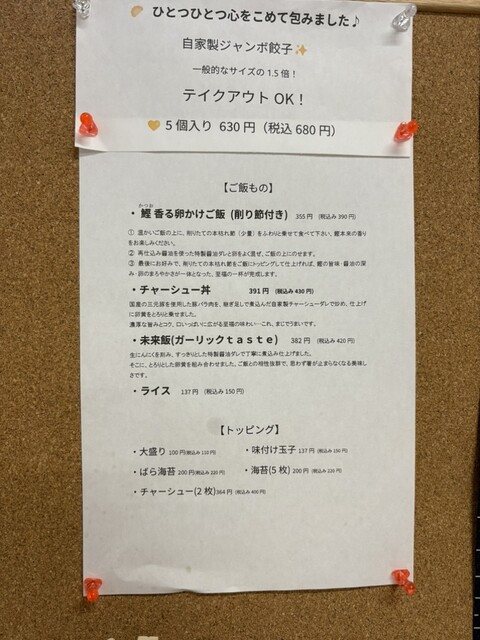 ひとつひとつ心をこめて包みました♪
自家製ジャンボ餃子✨
一般的なサイズの1.5倍！
テイクアウトOK！
💛5個入り 630円（税込680円）
【ご飯もの】
かつお
・鰹香る卵かけご飯 (削り節付き) 355円 (税込み390円)
① 温かいご飯の上に、削りたての本枯れ節（少量）をふわりと乗せて食べて下さい。鰹本来の香り
をお楽しみください。
② 再仕込み醤油を使った特製醤油ダレと卵をよく混ぜ、ご飯の上にのせます。
③ 最後にお好みで、削りたての本枯れ節をご飯にトッピングして仕上げれば、鰹の旨味・醤油の深
み・卵のまろやかさが一体となった、至福の一杯が完成します。
・チャーシュー丼 391円 (税込み430円)
国産の三元豚を使用した豚バラ肉を、継ぎ足しで煮込んだ自家製チャーシューダレで炒め、仕上げ
に卵黄をとろりと乗せました。
濃厚な旨みとコク、口いっぱいに広がる至福の味わい…これ、まじでうまいです。
・未来飯(ガーリックtaste) 382円 (税込み420円)
生にんにくを刻み、すっきりとした特製醤油ダレで丁寧に煮込み仕上げました。
そこに、とろりとした卵黄を組み合わせました。ご飯との相性抜群で、思わず箸が止まらなくなる美味し
さです。
・ライス 137円 (税込み150円)
【トッピング】
・大盛り 100円(税込み110円) ・味付け玉子 137円 (税込み150円)
・ばら海苔 200円(税込み220円) ・海苔(5枚) 200円 (税込み220円)
・チャーシュー(2枚)364円 (税込み400円)